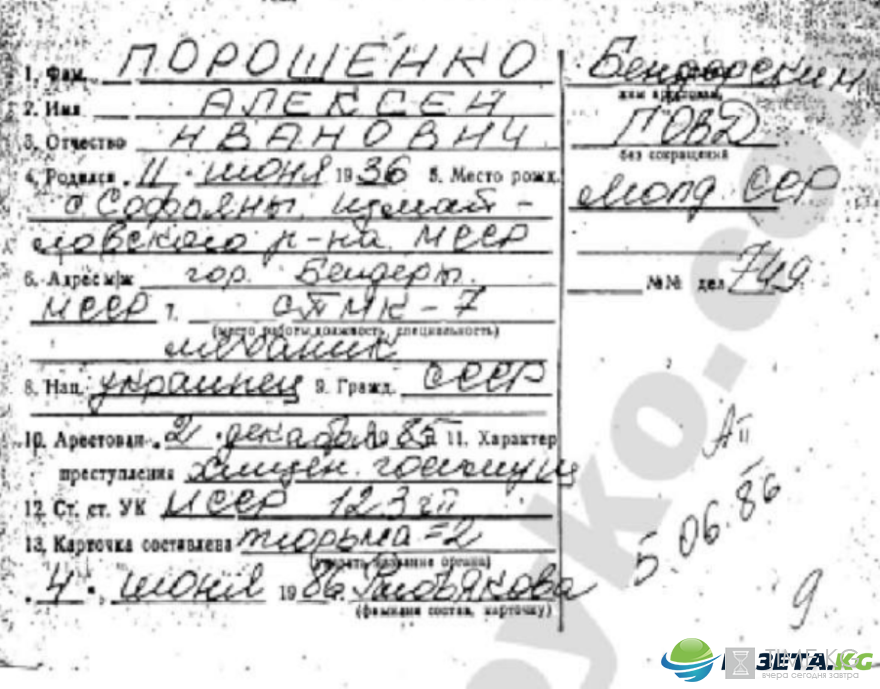 1. Фам. ПОРОШЕНКО
2. Имя АЛЕКСЕЙ
3. Отчество ИВАНОВИЧ
4. Родился 11 июня 1936 5. Место рожд.
с Софьяны, измаи-
ловского р-на МССР
6. Адрес м/ж гор. Бендеры.
МССР 7. СПМК-7
(место работы, должность, специальность)
механик
8. Нац. украинец 9. Гражд. СССР
10. Арестован 2 декабря 85 11. Характер
преступления хищен. госимущ
12. Ст. ст. УК МССР 123
13. Карточка составлена тюрьма-2
(указать название органа)
4 июня 1986
(фамилия состав. карточку)
Бендорский
кем арестован
ГОВД
без сокращений
Молд ССР
№№ дел 749
5.06.86
9
ГАЗЕТА.KG
TIME.KG
вчера сегодня завтра